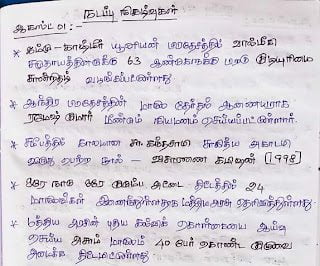 நடப்பு நிகழ்வுகள்
ஆகஸ்ட் 01 :-
* ஜம்மு - காஷ்மீர் யூனியன் பிரதேசத்தில் வால்மீகி
சமுதாயத்தினருக்கு 63 ஆண்டுகளாக்கு பிறகு குடியுரிமை
சான்றிதழ் வழங்கப்பட்டுள்ளது
* ஆந்திர பிரதேசத்தின் மாநில தேர்தல் ஆணையராக
ரமேஷ் குமார் மீண்டும் நியமனம் செய்யப்பட்டுள்ளார்.
* சமீபத்தில் காலமான சா. கந்தசாமி சாகித்ய அகாடமி
விருது பெற்ற நூல் - விசாரணை கமிஷன் [1998]
* ஒரே நாடு ஒரே குடும்ப அட்டை திட்டத்தில் 24
மாநிலங்கள் இணைந்துள்ளதாக மத்திய அரசு தெரிவித்துள்ளது.
* மத்திய அரசின் புதிய கல்விக் கொள்கையை ஆய்வு
செய்ய அசாம் மாநிலம் 40 பேர் கொண்ட குழுவை
அமைக்க திட்டமிட்டுள்ளது